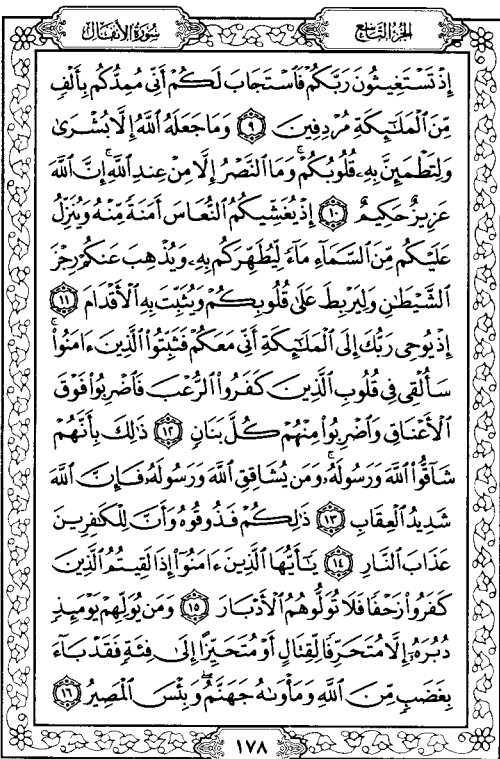 سُورَةُ الأَنفَالِ
الجُزْءُ التَّاسِعُ
إِذْ تَسْتَغِيثُونَ رَبَّكُمْ فَٱسْتَجَابَ لَكُمْ أَنِّى مُمِدُّكُم بِأَلْفٍ
مِّنَ ٱلْمَلَٰٓئِكَةِ مُرْدِفِينَ ٩ وَمَا جَعَلَهُ ٱللَّهُ إِلَّا بُشْرَىٰ
وَلِتَطْمَئِنَّ بِهِۦ قُلُوبُكُمْ ۚ وَمَا ٱلنَّصْرُ إِلَّا مِنْ عِندِ ٱللَّهِ ۚ إِنَّ ٱللَّهَ
عَزِيزٌ حَكِيمٌ ١٠ إِذْ يُغَشِّيكُمُ ٱلنُّعَاسَ أَمَنَةً مِّنْهُ وَيُنَزِّلُ
عَلَيْكُم مِّنَ ٱلسَّمَآءِ مَآءً لِّيُطَهِّرَكُم بِهِۦ وَيُذْهِبَ عَنكُمْ رِجْزَ
ٱلشَّيْطَٰنِ وَلِيَرْبِطَ عَلَىٰ قُلُوبِكُمْ وَيُثَبِّتَ بِهِ ٱلْأَقْدَامَ ١١
إِذْ يُوحِى رَبُّكَ إِلَى ٱلْمَلَٰٓئِكَةِ أَنِّى مَعَكُمْ فَثَبِّتُوا۟ ٱلَّذِينَ ءَامَنُوا۟ ۚ
سَأُلْقِى فِى قُلُوبِ ٱلَّذِينَ كَفَرُوا۟ ٱلرُّعْبَ فَٱضْرِبُوا۟ فَوْقَ
ٱلْأَعْنَاقِ وَٱضْرِبُوا۟ مِنْهُمْ كُلَّ بَنَانٍ ١٢ ذَٰلِكَ بِأَنَّهُمْ
شَآقُّوا۟ ٱللَّهَ وَرَسُولَهُۥ ۚ وَمَن يُشَاقِقِ ٱللَّهَ وَرَسُولَهُۥ فَإِنَّ ٱللَّهَ
شَدِيدُ ٱلْعِقَابِ ١٣ ذَٰلِكُمْ فَذُوقُوهُ وَأَنَّ لِلْكَٰفِرِينَ
عَذَابَ ٱلنَّارِ ١٤ يَٰٓأَيُّهَا ٱلَّذِينَ ءَامَنُوٓا۟ إِذَا لَقِيتُمُ ٱلَّذِينَ
كَفَرُوا۟ زَحْفًا فَلَا تُوَلُّوهُمُ ٱلْأَدْبَارَ ١٥ وَمَن يُوَلِّهِمْ يَوْمَئِذٍ
دُبُرَهُۥٓ إِلَّا مُتَحَرِّفًا لِّقِتَالٍ أَوْ مُتَحَيِّزًا إِلَىٰ فِئَةٍ فَقَدْ بَآءَ
بِغَضَبٍ مِّنَ ٱللَّهِ وَمَأْوَىٰهُ جَهَنَّمُ ۖ وَبِئْسَ ٱلْمَصِيرُ ١٦
١٧٨